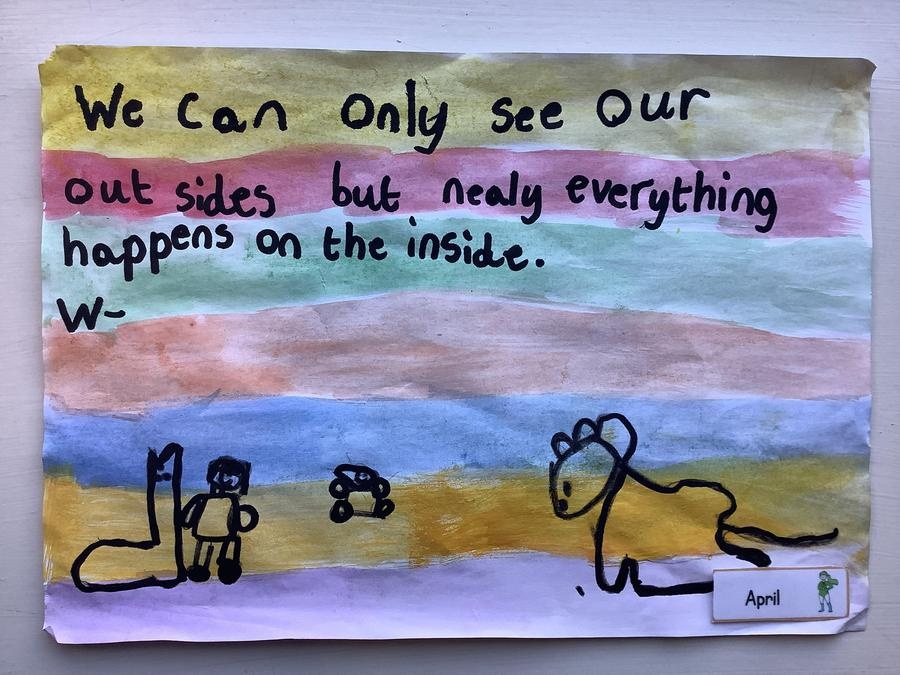 We Can only see our
out sides but nealy everything
happens on the inside.
W-
April